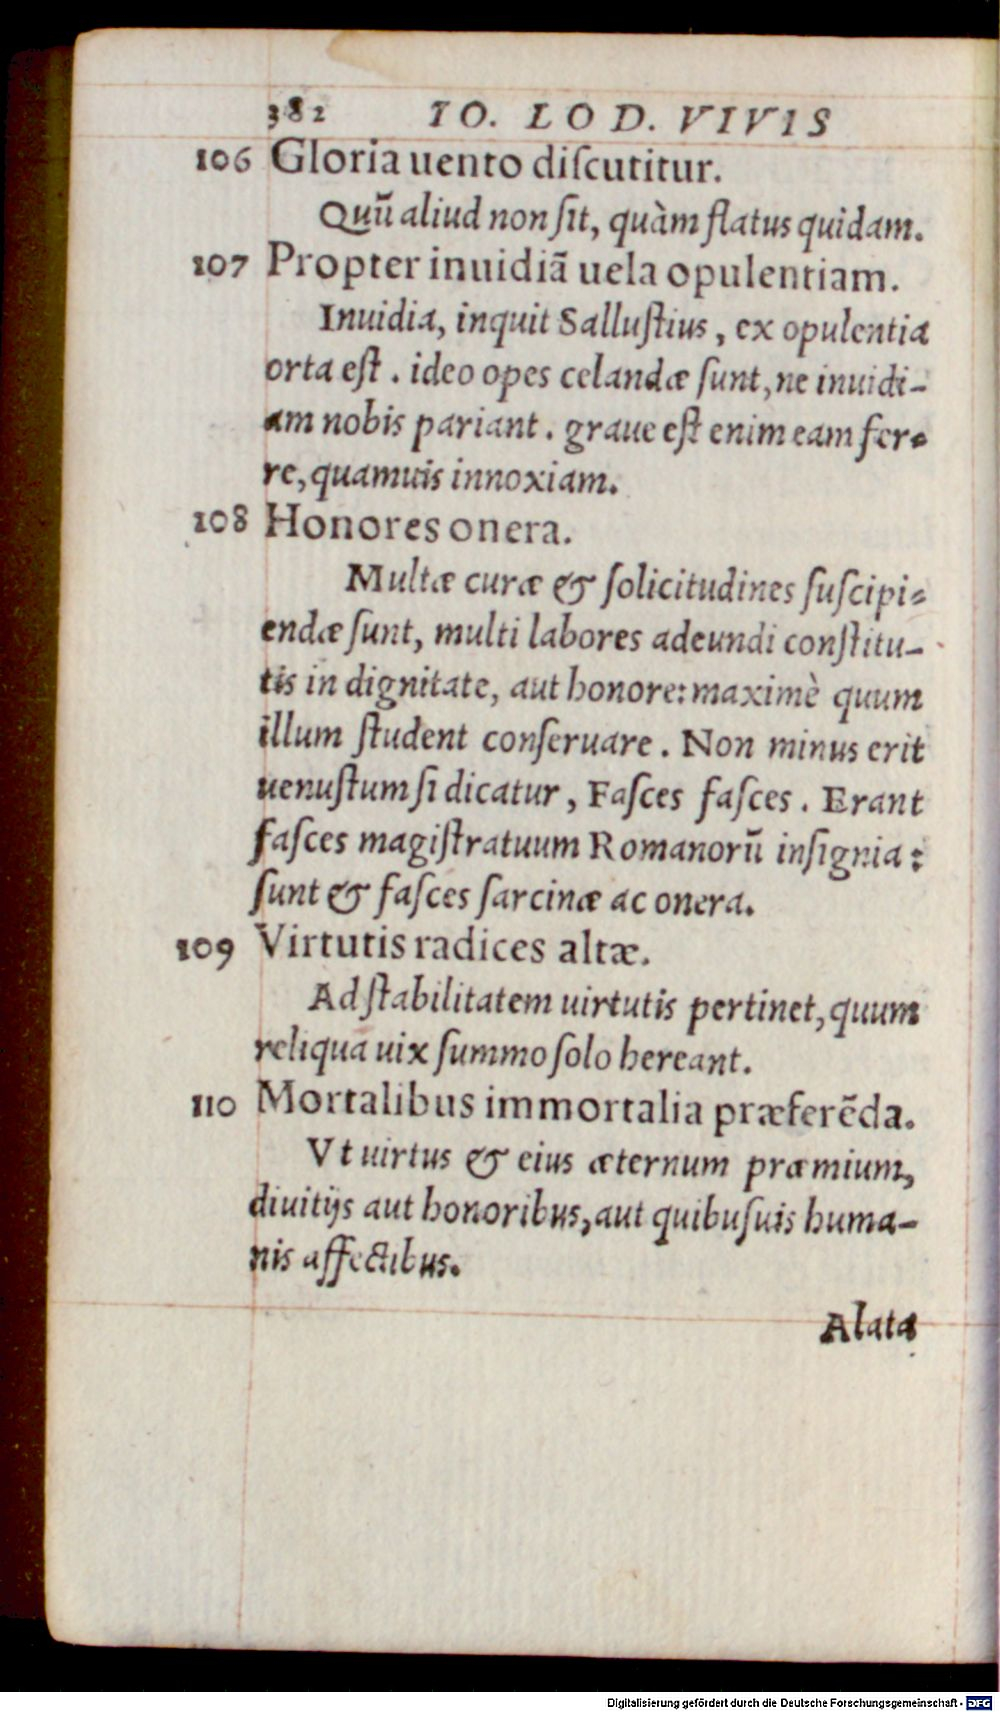 382 IO. LOD. VIVIS
106 Gloria uento diſcutitur.
Quū aliud non ſit, quàm flatus quidam.
107 Propter inuidiā uela opulentiam.
Inuidia, inquit Salluſtius, ex opulentia
orta eſt. ideo opes celandæ ſunt, ne inuidi-
am nobis pariant. graue eſt enim eam fer-
re, quamuis innoxiam.
108 Honores onera.
Multæ curæ & ſolicitudines ſuſcipi-
endæ ſunt, multi labores adeundi conſtitu-
tis in dignitate, aut honore: maximè quum
illum ſtudent conſeruare. Non minus erit
uenuſtum ſi dicatur, Faſces faſces. Erant
faſces magiſtratuum Romanorū inſignia:
ſunt & faſces ſarcinæ ac onera.
109 Virtutis radices altæ.
Ad ſtabilitatem uirtutis pertinet, quum
reliqua uix ſummo ſolo hereant.
110 Mortalibus immortalia præferēda.
Vt uirtus & eius æternum præmium,
diuitijs aut honoribus, aut quibuſuis huma-
nis affectibus.
Alata
Digitalisierung gefördert durch die Deutsche Forschungsgemeinschaft - DFG